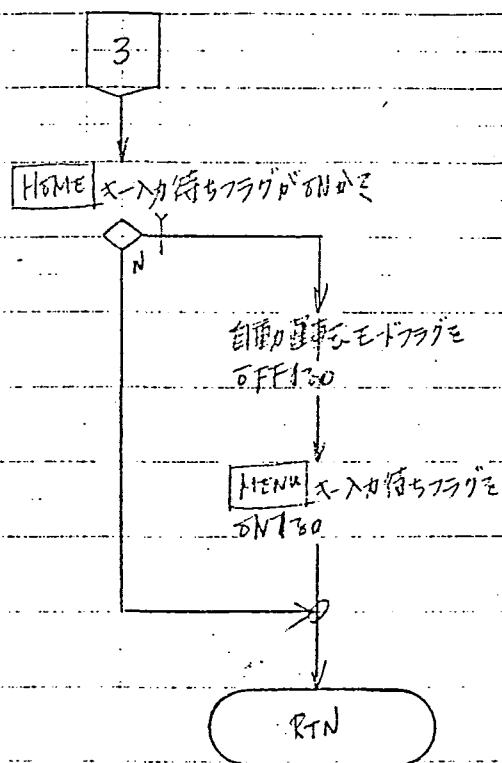 3
HOME キー入力待ちフラグがONか?
Y
N
自動運転モードフラグを
OFFする
MENU キー入力待ちフラグを
ONする
RTN